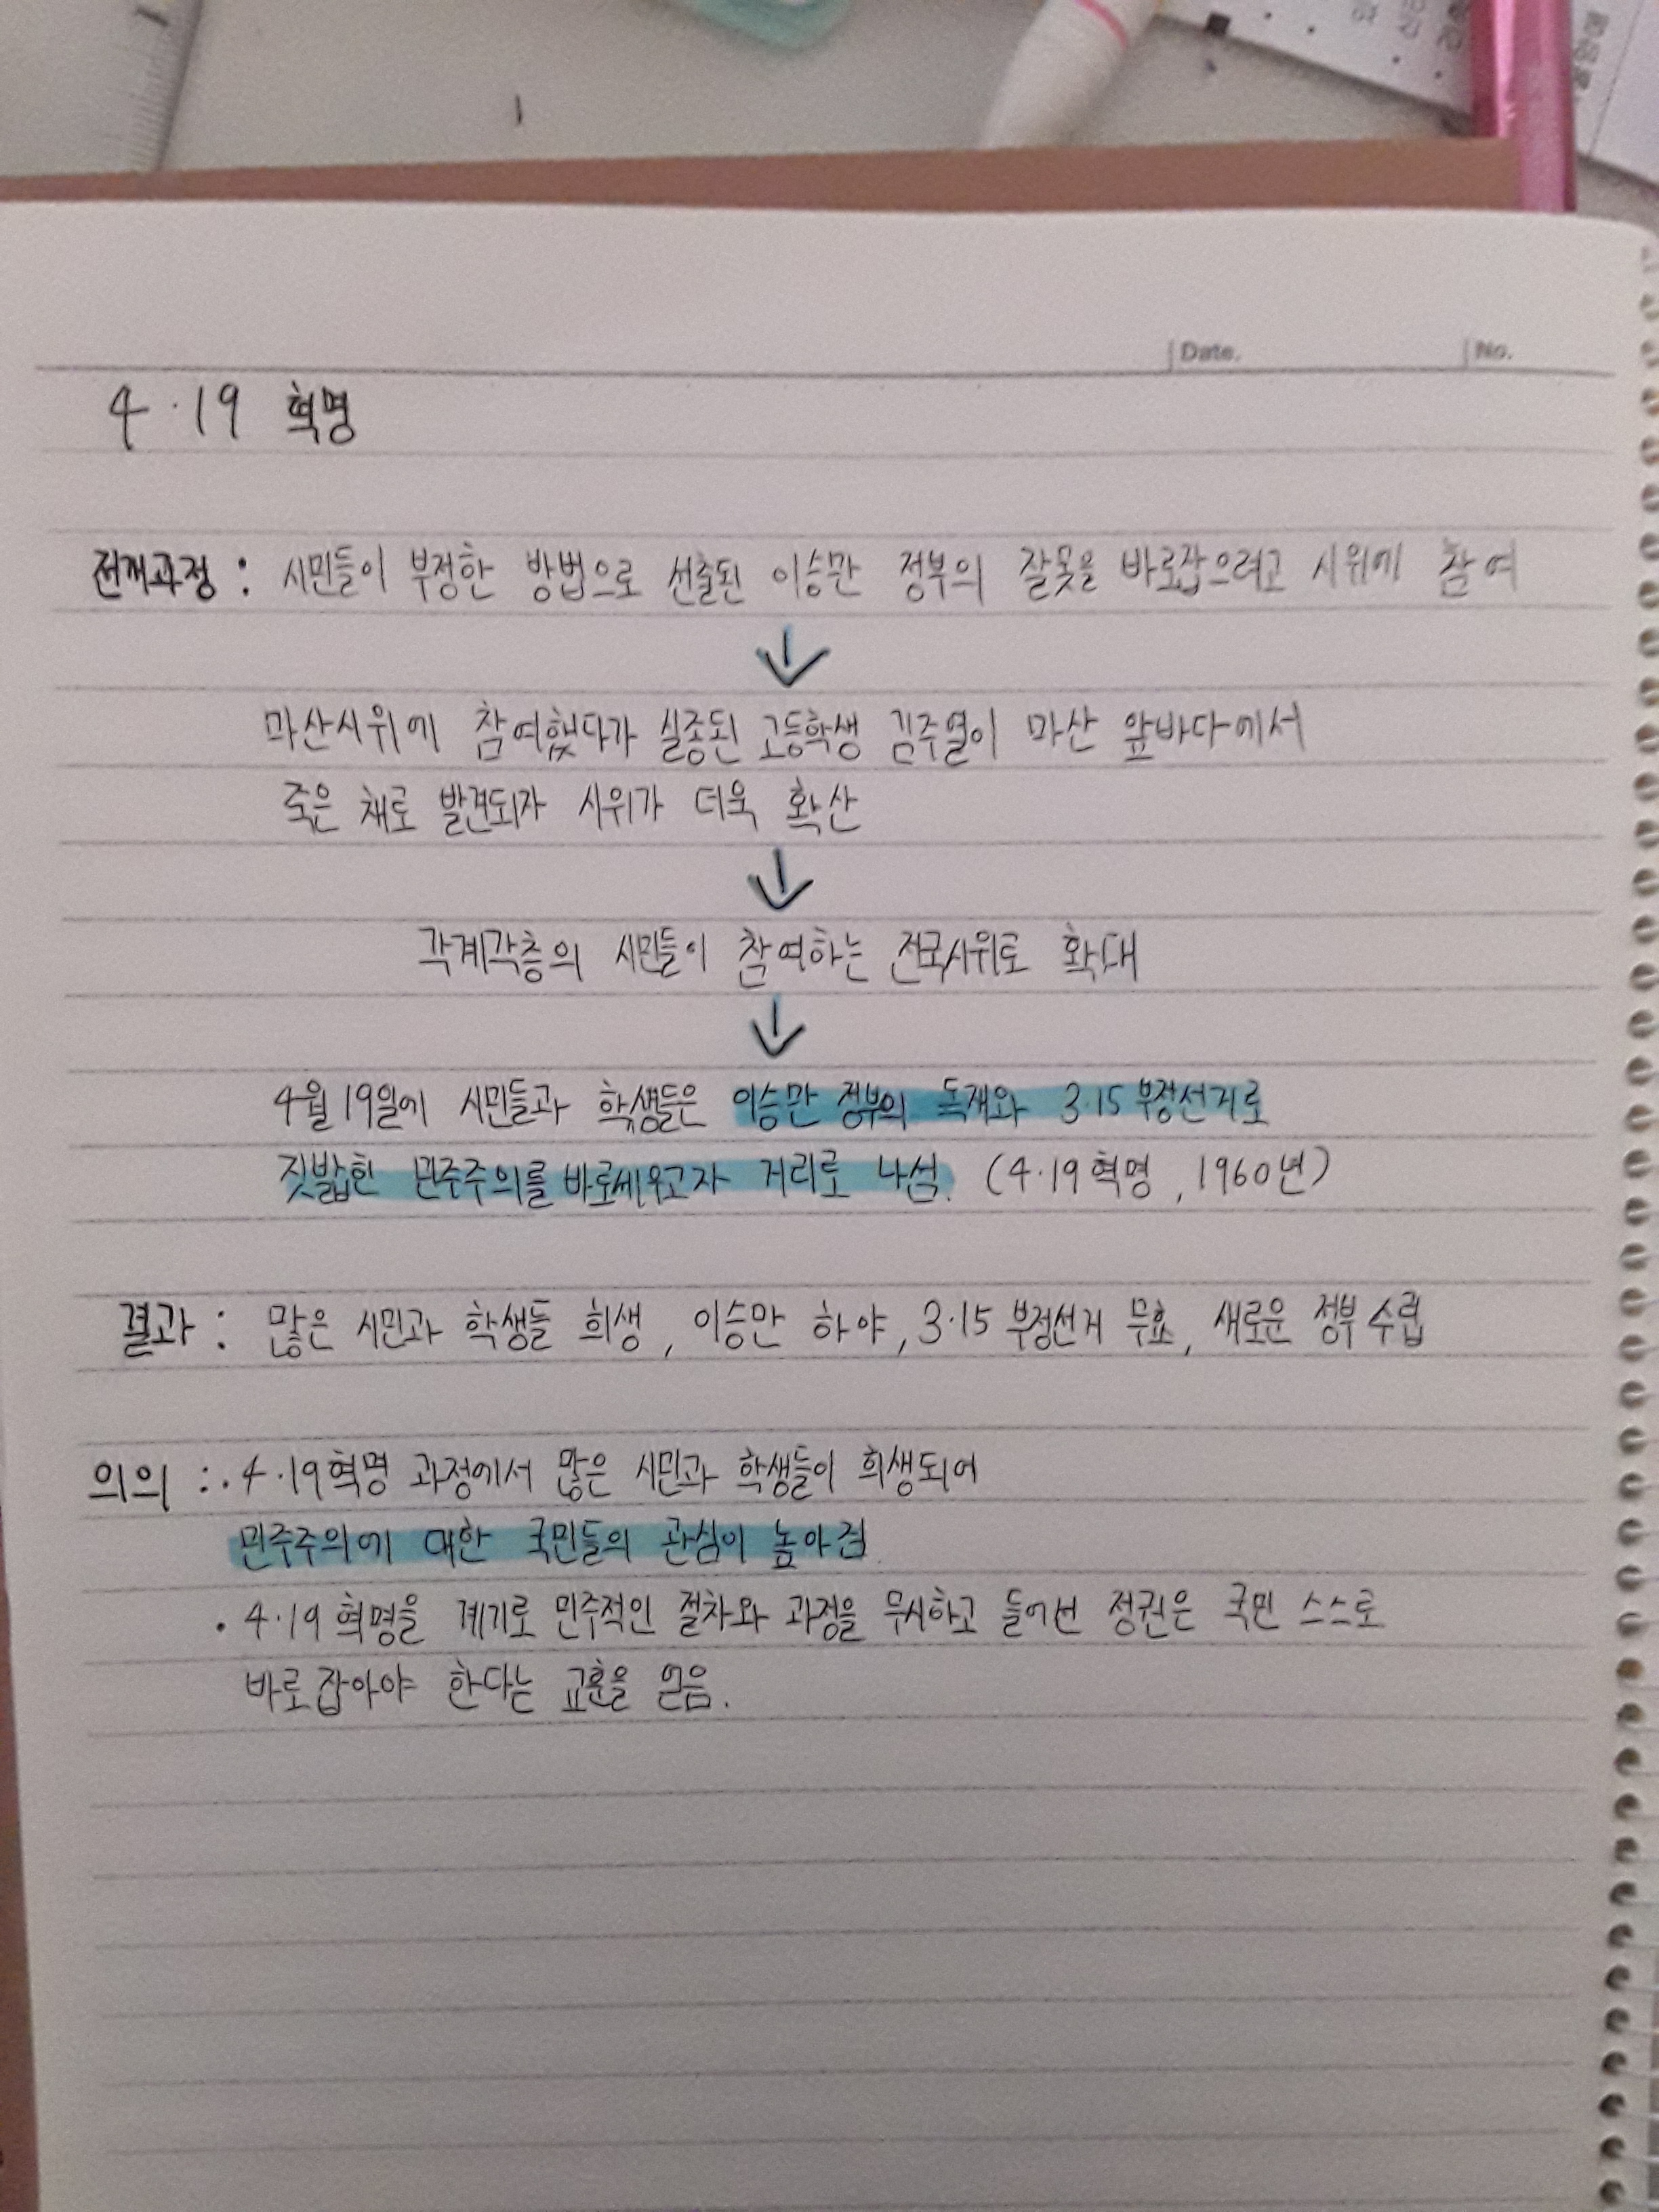 Date.
No.
4·19 혁명
전개과정 : 시민들이 부정한 방법으로 선출된 이승만 정부의 잘못을 바로잡으려고 시위에 참여
↓
마산시위에 참여했다가 실종된 고등학생 김주열이 마산 앞바다에서
죽은 채로 발견되자 시위가 더욱 확산
↓
각계각층의 시민들이 참여하는 전국시위로 확대
↓
4월 19일에 시민들과 학생들은 이승만 정부의 독재와 3·15 부정선거로
짓밟힌 민주주의를 바로세우고자 거리로 나섬. (4·19 혁명, 1960년)
결과 : 많은 시민과 학생들 희생, 이승만 하야, 3·15 부정선거 무효, 새로운 정부 수립
의의 : · 4·19혁명 과정에서 많은 시민과 학생들이 희생되어
민주주의에 대한 국민들의 관심이 높아짐.
· 4·19 혁명을 계기로 민주적인 절차와 과정을 무시하고 들어선 정권은 국민 스스로
바로잡아야 한다는 교훈을 얻음.